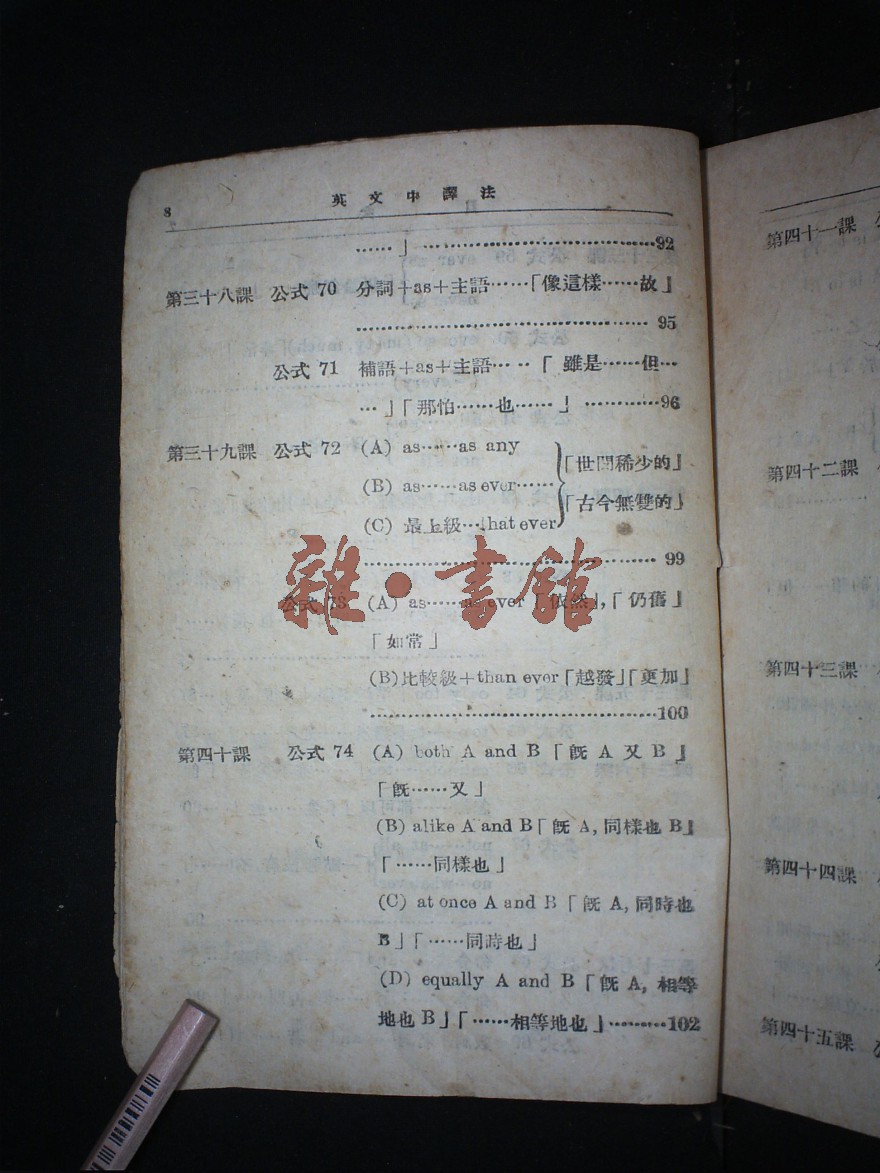 8 英文中譯法
……」……………………………92
第三十八課 公式 70 分詞+as+主語……「像這樣……故」
………………………………… 95
公式 71 補語+as+主語……「雖是……但…
…」「那怕……也……」…………96
第三十九課 公式 72 (A) as……as any
(B) as……as ever……
(C) 最上級…that ever
「世間稀少的」
「古今無雙的」
………………………………… 99
公式 73 (A) as……as ever「依然」,「仍舊」
「如常」
(B)比較級+than ever「越發」「更加」
…………………………………100
第四十課 公式 74 (A) both A and B「旣 A 又 B」
「旣……又」
(B) alike A and B「旣 A, 同樣也 B」
「……同樣也」
(C) at once A and B「旣 A, 同時也
B」「……同時也」
(D) equally A and B「旣 A, 相等
地也 B」「……相等地也」………102
雜·書館
第四十一課
第四十二課
第四十三課
第四十四課
第四十五課